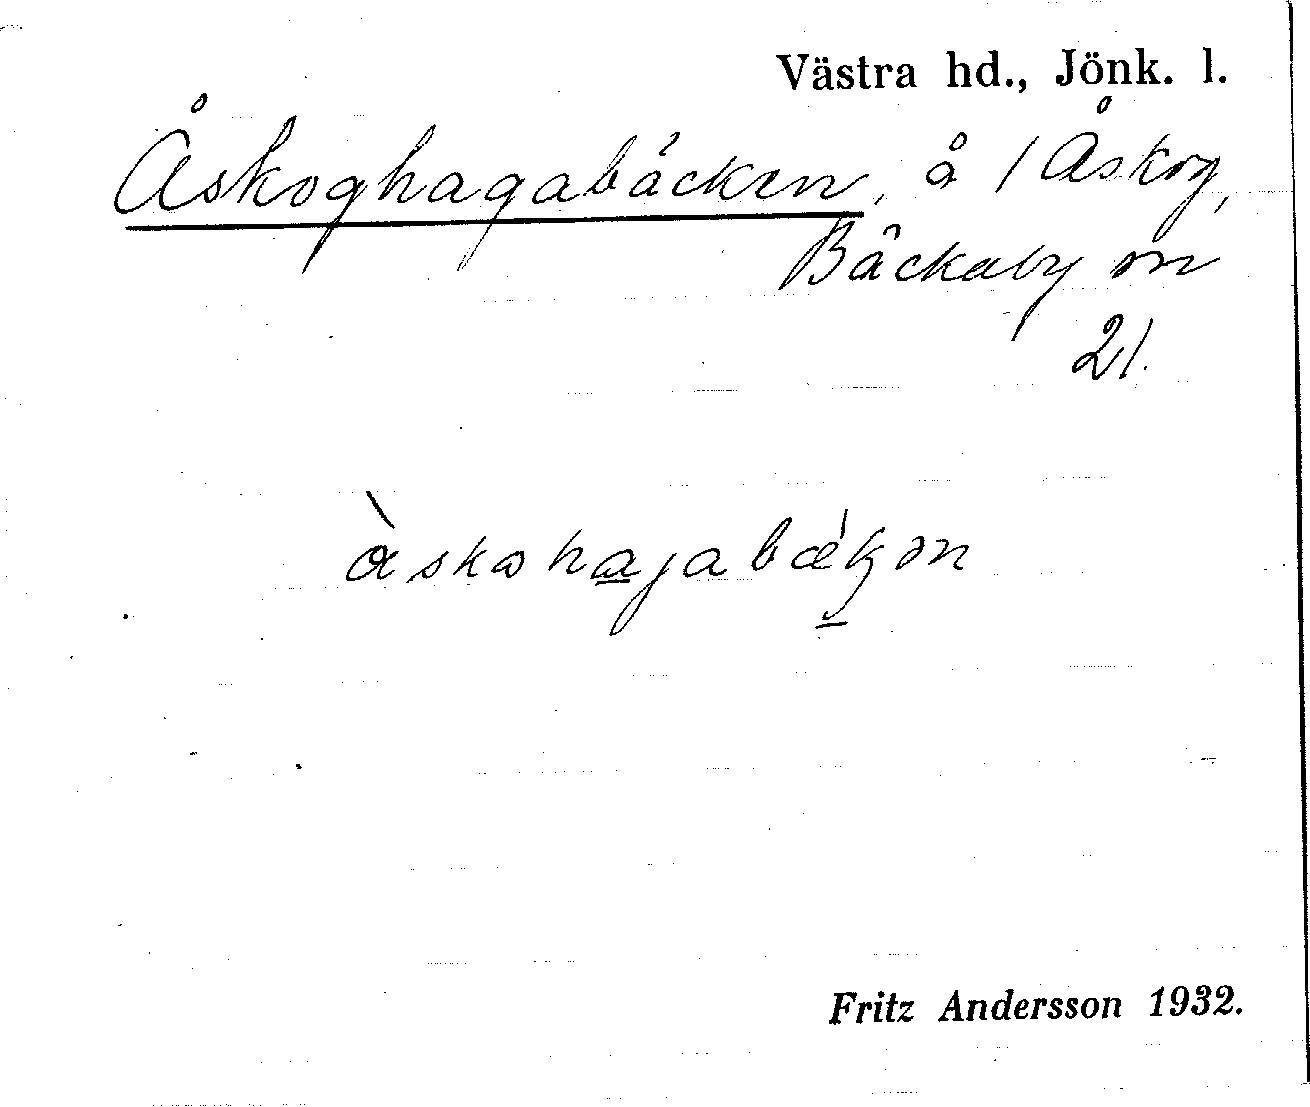 Västra hd., Jönk. l.
Åskoghagabäcken, å / Åskog,
Bäckaby sn
21.
àskohagabækən
Fritz Andersson 1932.